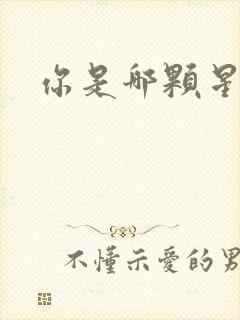 你是那顆星
不懂示愛的男